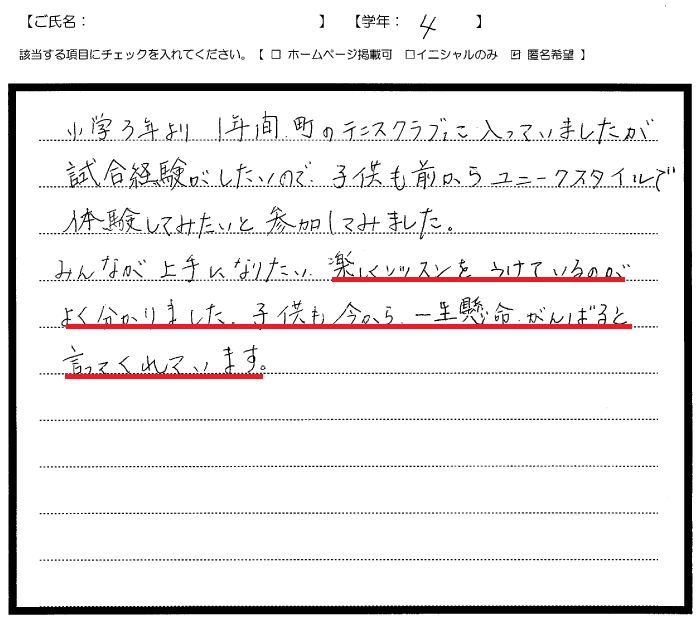 【ご氏名： 】 【学年： 4 】
該当する項目にチェックを入れてください。【 □ ホームページ掲載可 □イニシャルのみ ☑ 匿名希望 】
小学3年より 1年間、町のテニスクラブに入っていましたが
試合経験がしたいので、子供も前からユニークスタイルで
体験してみたいと参加してみました。
みんなが上手になりたい、楽しくレッスンをうけているのが
よく分かりました。子供も今から、一生懸命、がんばると
言ってくれています。